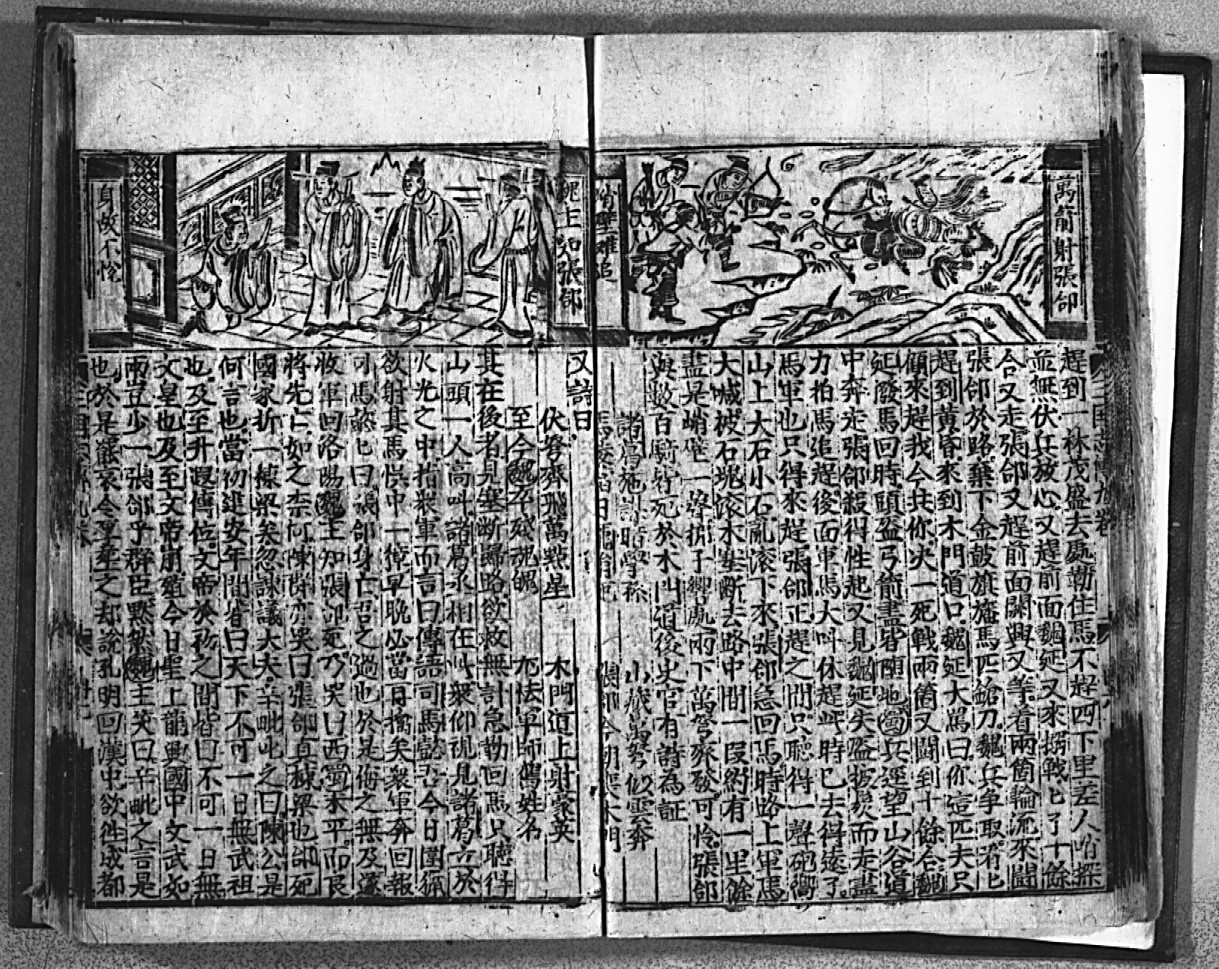 萬箭射張郃
峭壁難追
趕到一林茂盛去處勒住馬不趕四下里差人哨探
並無伏兵放心又趕前面魏延又來搦戰匕了十餘
合又走張郃又趕前面關興又等着兩箇輪流來鬪
張郃於路棄下金鼓旗旛馬匹鎗刀魏兵爭取
趕到黃昏來到木門道口魏延大罵曰你這匹夫只
顧來趕我今共你决一死戰兩箇又鬪到十餘合魏
延撥馬回時頭盔弓箭盡皆隨地兵逕望山谷道
中奔走張郃殺得性起又見魏延失盔撥馬而走盡
力拍馬追趕後面軍馬大叫休趕此時已去得遠了
馬軍也只得來趕張郃正趕之間只聽得一聲砲响
山上大石小石亂滚下來張郃急回馬時路上軍馬
大喊被石滚木塞斷去路中間一段約有一里餘
盡是峭壁一聲梆子嚮處兩下萬弩齊發可怜張郃
與數百騎皆死於木門道後史官有詩為証
諸葛施計 小嶺萬弩似雲奔
張郃今朝喪木門
魏主知張郃
身故不悅
又詩曰
伏弩齊飛萬點星 木門道上射雄英
至今魏卒殘魂魄 尤怯軍師舊姓名
其在後者見塞斷歸路欲救無計急勒回馬只聽得
山頭一人高叫諸葛丞相在此衆仰視見諸葛立於
火光之中指衆軍而言曰傳語司馬懿吾今日圍獵
欲射其馬悞中一獐早晚必當自擒矣衆軍奔回報
司馬懿匕曰張郃身亡吾之過也於是悔之無及遂
收軍回洛陽魏主知張郃死乃哭曰西蜀未平而良
將先亡如之奈何陳群亦哭曰張郃真棟梁也郃死
國家折一棟梁矣忽諫議大夫辛毗叱之曰陳公是
何言也當初建安年間皆曰天下不可一日無武祖
也及至升遐傳位文帝於初之間皆曰不可一日無
文皇也及至文帝崩殂今日聖上龍興國中文武如
雨豈少一張郃乎群臣默然魏主笑曰辛毗之言是
也於是罷哀令厚葬之却說孔明回漢中欲徃成都